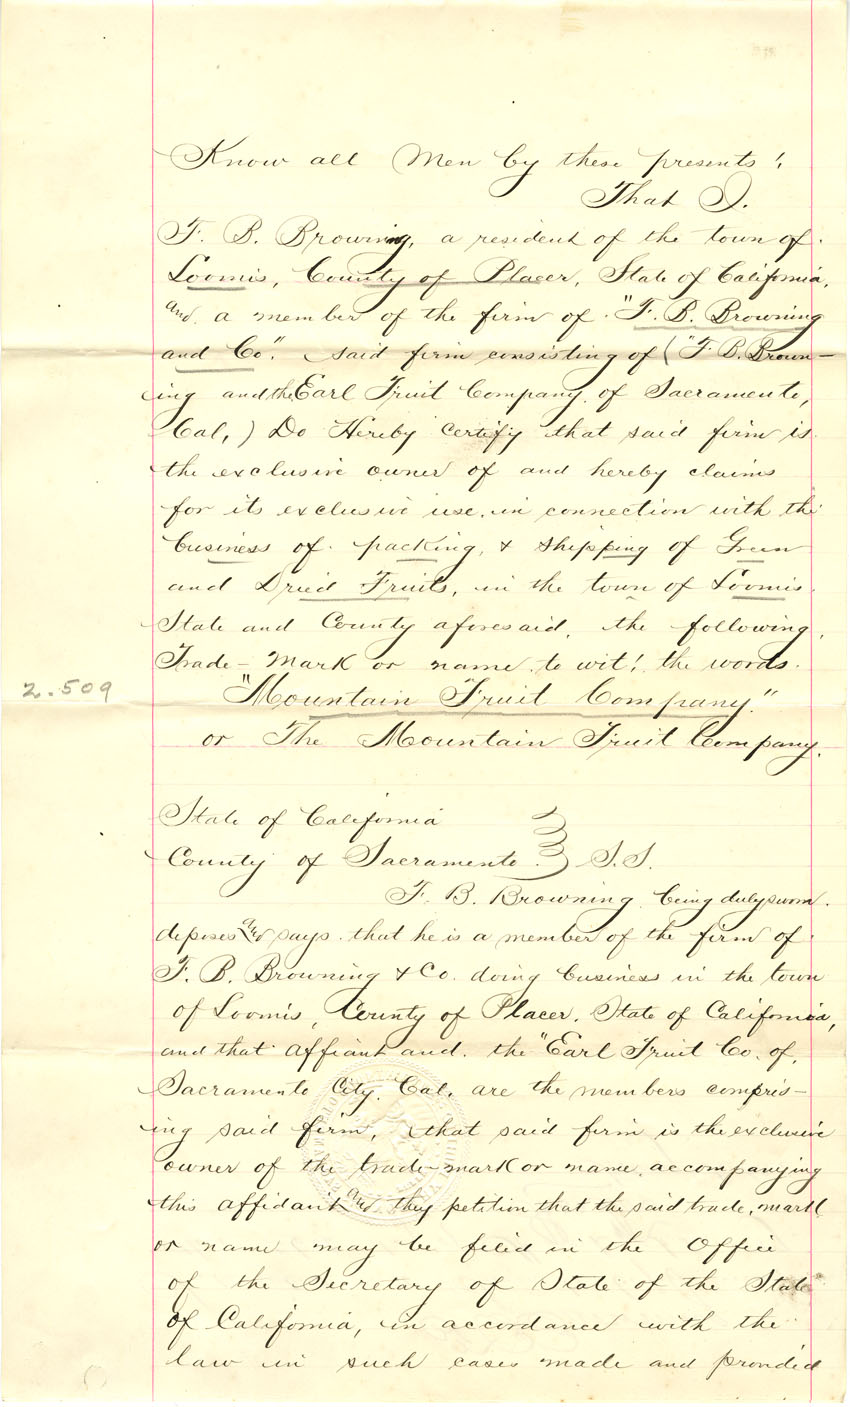 Know all Men by these presents:
That I.
F. B. Browning, a resident of the town of
Loomis, County of Placer, State of California,
and a member of the firm of "F. B. Browning
and Co". said firm consisting of ("F. B. Brown-
ing and the Earl Fruit Company, of Sacramento,
Cal,) Do Hereby Certify that said firm is
the exclusive owner of and hereby claims
for its exclusive use, in connection with the
business of packing, & shipping of Green
and Dried Fruits, in the town of Loomis.
State and County aforesaid, the following,
Trade-mark or name, to wit: the words.
2.509
"Mountain Fruit Company."
or The Mountain Fruit Company.
State of California
County of Sacramento. } S.S.
F. B. Browning being duly sworn.
deposes and says. that he is a member of the firm of
F. B. Browning & Co. doing business in the town
of Loomis, County of Placer. State of California,
and that affiant and. the "Earl Fruit Co. of,
Sacramento City, Cal. are the members compris-
ing said firm, that said firm is the exclusive
owner of the trade-mark or name, accompanying
this affidavit and they petition that the said trade, mark
or name may be filed in the Office
of the Secretary of State of the State
of California, in accordance with the
law in such cases made and provided